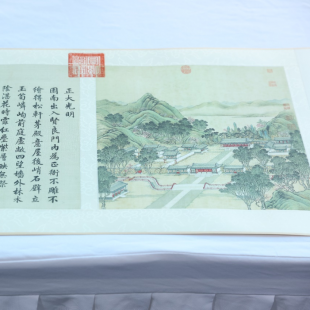 正大光明
園南出入賢良門內為正衙不雕不
繪得松軒茅殿意屋後峭石壁立
玉筍嶙峋前庭虛敞四望牆外林木
陰湛花時霏紅疊紫層映無際